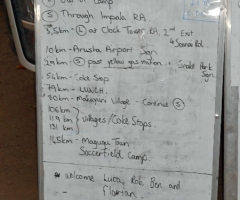 Out of Camp
(S) Through Impala RA.
3,5km - (L) at Clock Tower RA. 2nd Exit
4 Sokoine Rd.
10km - Arusha Airport Sign
29km - (S) past yellow gas station + Snake Park Sign
54km - Coke Stop
79km - LUNCH.
90km - Makuyuni Village - Continue (S)
106km
119km
131km
Villages/Coke Stops
145km - Magugu Town
Soccerfield Camp.
* welcome Luca, Rob, Ben and
Florian